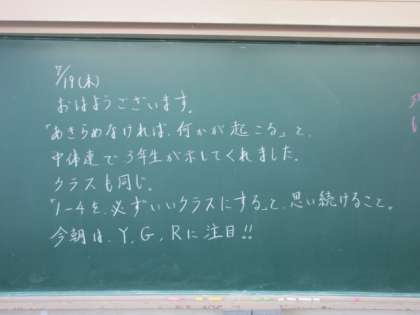 7/19(木)
おはようございます。
「あきらめなければ、何かが起こる」と、
中体連で3年生が示してくれました。
クラスも同じ。
「1-4を、必ずいいクラスにする」と、思い続けること。
今朝は、Y、G、Rに注目!!